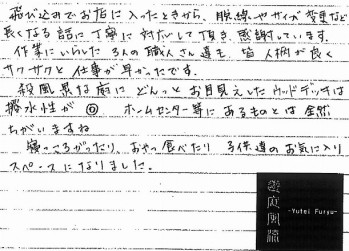 飛び込みでお店に入ったときから、脱線やサイズ変更など
長くなる話に丁寧に対応して頂き、感謝しています。
作業にいらした3人の職人さん達も、皆人柄が良く
サクサクと仕事が早かったです。
殺風景な庭にどんっとお目見えしたウッドデッキは
撥水性が◎ ホームセンター等にあるものとは全然
ちがいますね
寝っころがったり、おやつ食べたり 子供達のお気に入り
スペースになりました。
遊庭風流
-Yutei Furyu-